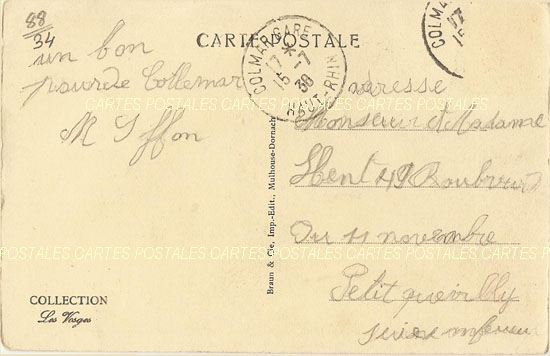 88
34
CARTE POSTALE
un bon
de Collemar
M Iffon
COLMAR GARE
17 * -7
15
38
HAUT-RHIN
COLMAR
17
15
adresse
Monsieur et Madame
49
Du 11 novembre
Petit quevilly
seine
Braun & Cie, Imp.-Edit., Mulhouse-Dornach
COLLECTION
Les Vosges
POSTALES CARTES POSTALES CARTES POSTALES CARTES POSTALES
POSTALES CARTES POSTALES CARTES POSTALES CARTES POSTALES